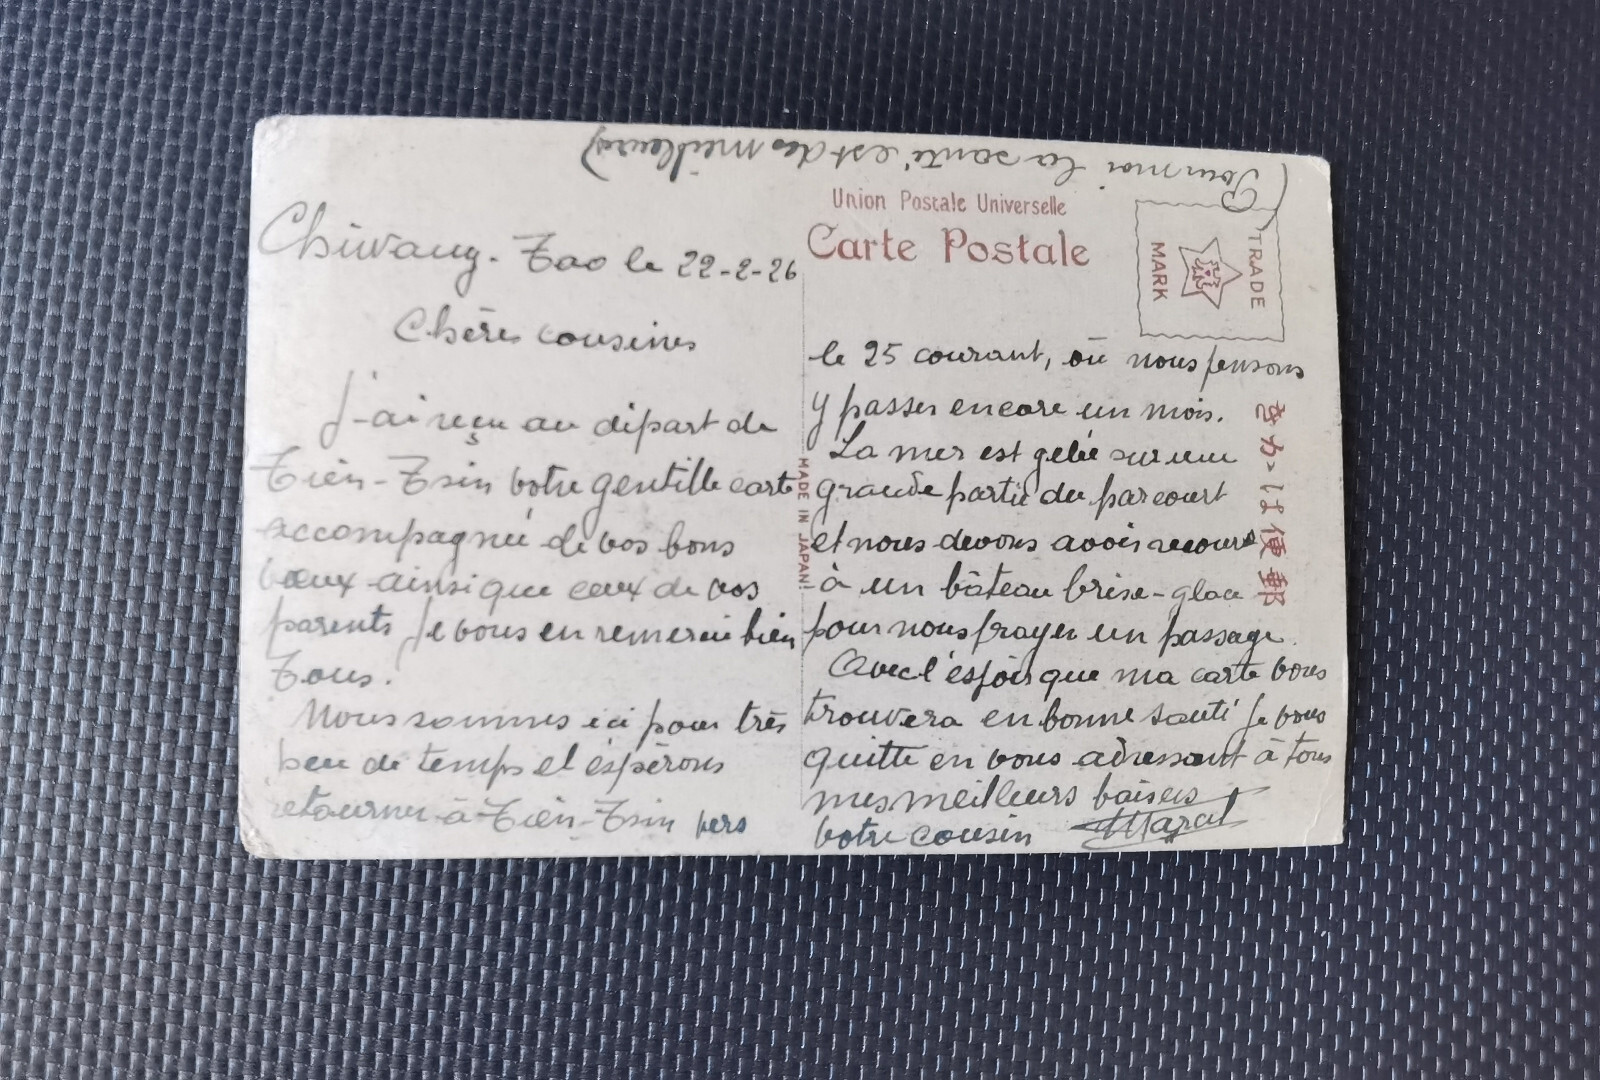 (Pour moi la santé est des meilleures)
Union Postale Universelle
Carte Postale
TRADE
MARK
Chinvang-Tao le 22-2-26
Chères cousines
J'ai reçu au départ de
Tièn-Tsin votre gentille carte
accompagnée de vos bons
vœux ainsi que ceux de vos
parents Je vous en remercie bien
Tous.
Nous sommes ici pour très
peu de temps et éspèrons
retourner à Tièn-Tsin vers
MADE IN JAPAN
le 25 courant, où nous pensons
y passer encore un mois.
La mer est gelée sur une
grande partie du parcourt
et nous devons avoir recours
à un bâteau brise-glace
pour nous frayer un passage.
Avec l'éspoir que ma carte vous
trouvera en bonne santé je vous
quitte en vous adressant à tous
mes meilleurs baisers
votre cousin
郵便はがき